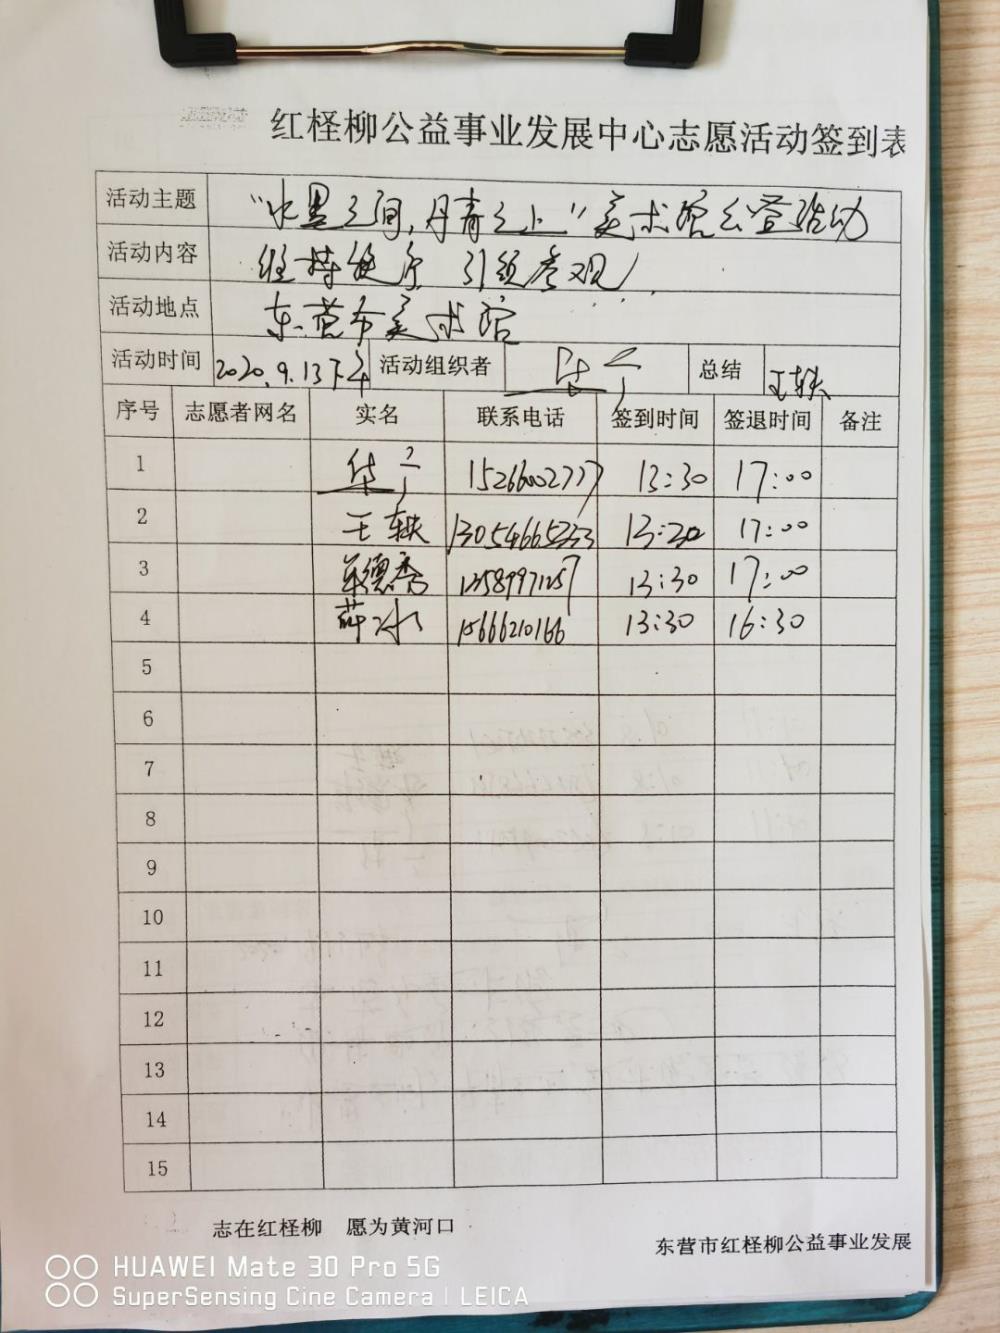 红柽柳公益事业发展中心志愿活动签到表
活动主题 “水墨之间,丹青之上”美术馆公益活动
活动内容 维持秩序 引领参观
活动地点 东营市美术馆
活动时间 2020.9.13下午 活动组织者 总结 王轶
序号 志愿者网名 实名 联系电话 签到时间 签退时间 备注
1 15266002777 13:30 17:00
2 王轶 13054665333 13:30 17:00
3 13589971257 13:30 17:00
4 薛冰 15666210166 13:30 16:30
5
6
7
8
9
10
11
12
13
14
15
志在红柽柳 愿为黄河口
东营市红柽柳公益事业发展
HUAWEI Mate 30 Pro 5G
SuperSensing Cine Camera | LEICA